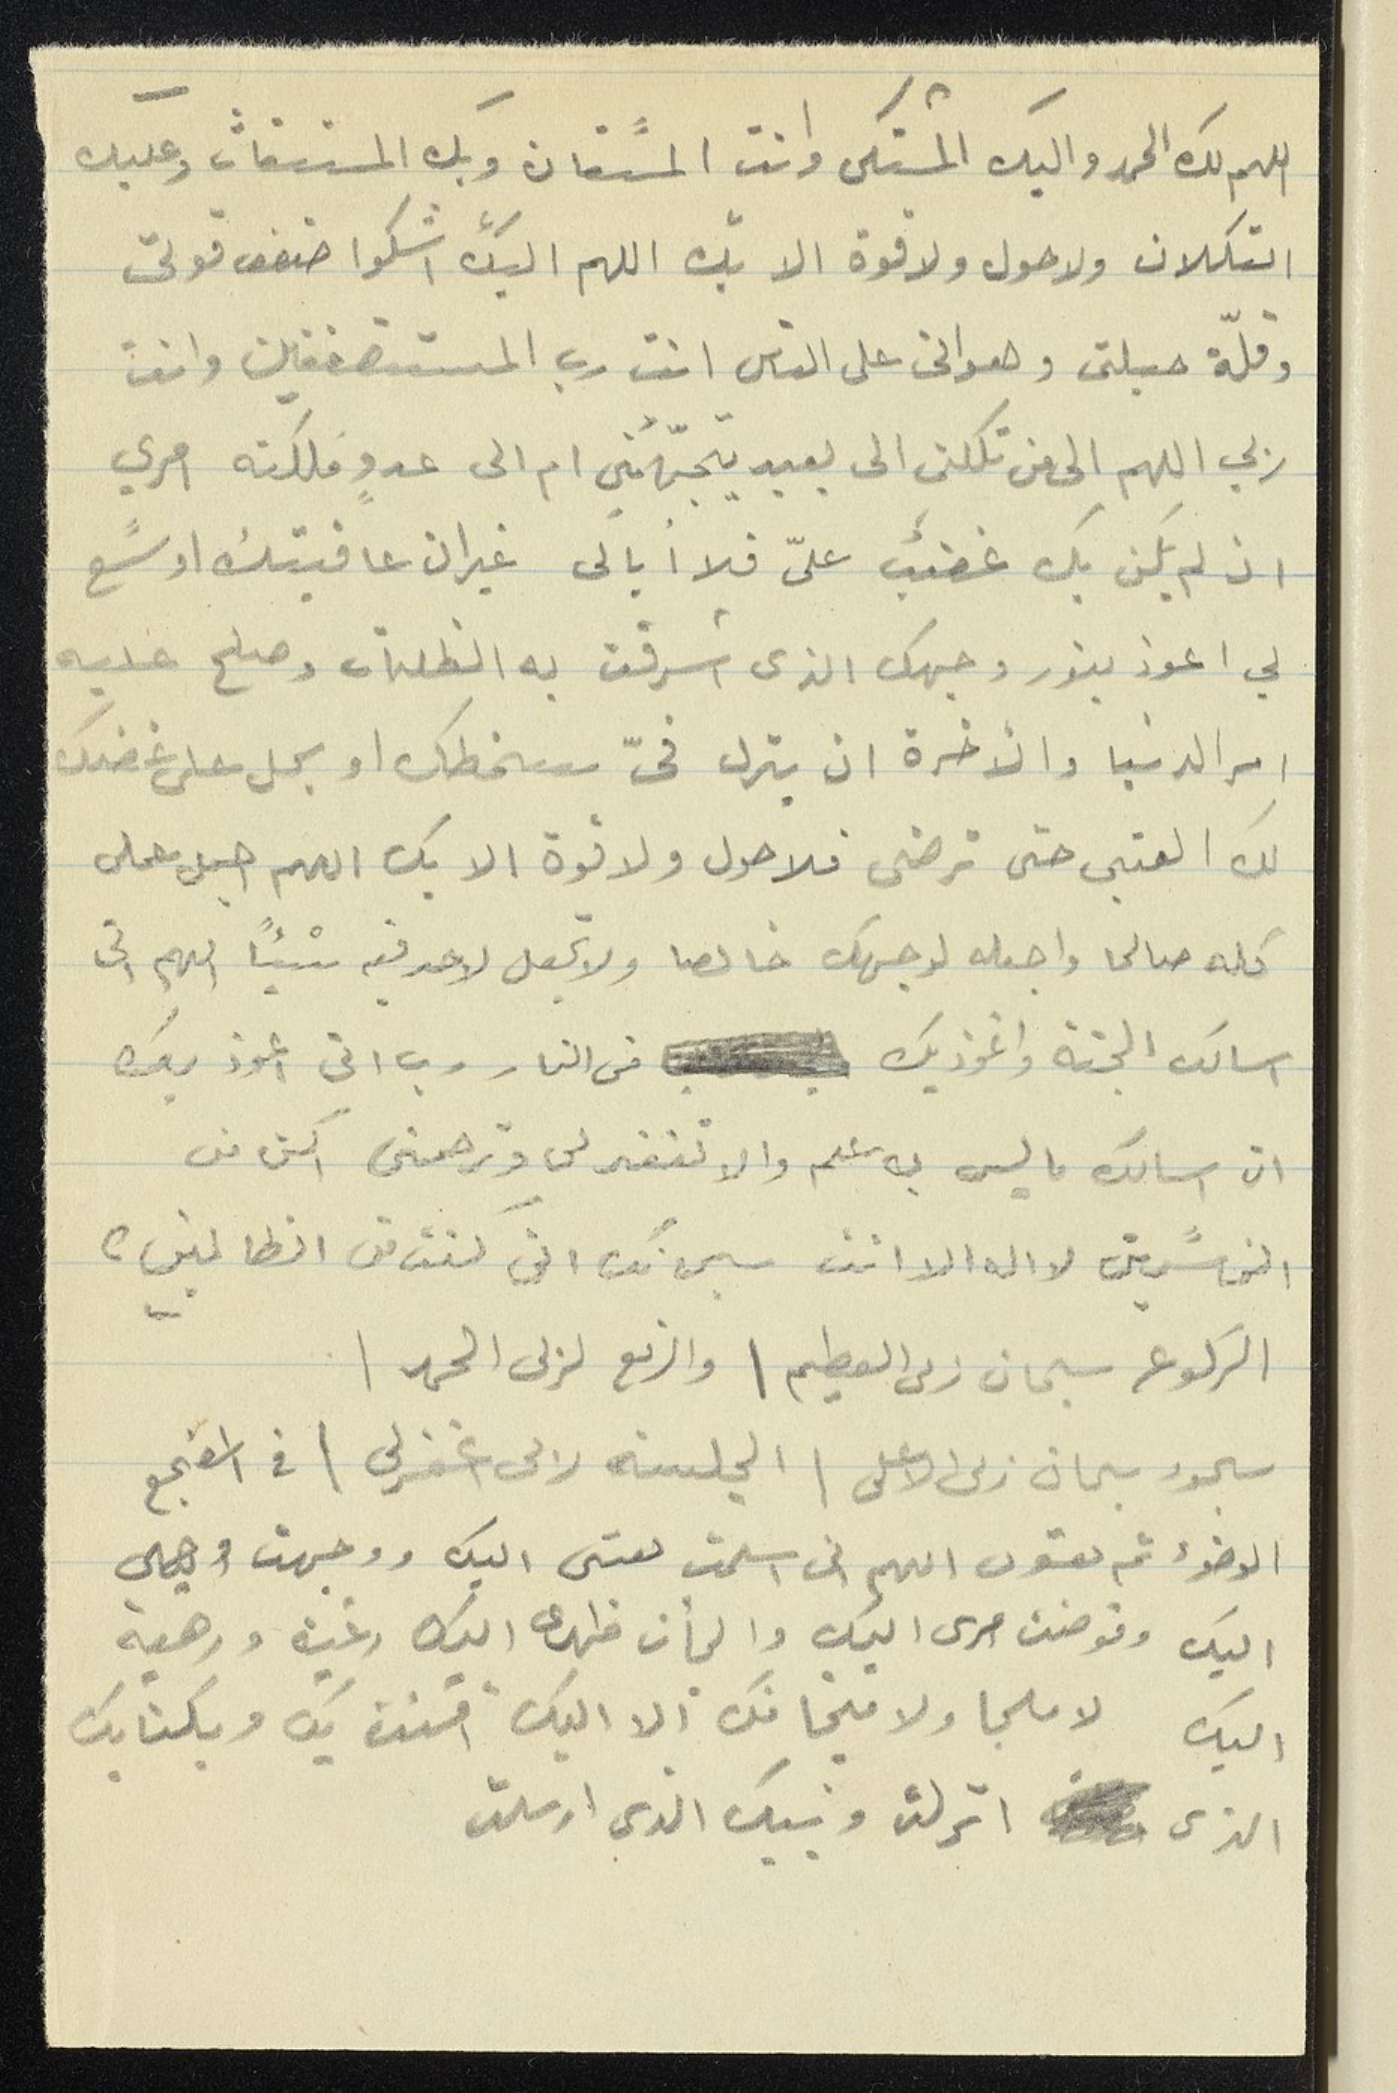 اللهم لك الحمد واليك المشتكى وانت المستعان وبك المستغاث وعليك
التكلان ولا حول ولا قوة الا بك اللهم اليك اشكوا ضعف قوتى
وقلّة حيلتى وهوانى على الناس انت رب المستضعفين وانت
ربي اللهم الى من تكلنى الى بعيد يتجهّمنى ام الى عدوٍ ملكته امري
ان لم يكن بك غضب علىّ فلا أبالى غير ان عافيتك اوسع
لي اعوذ بنور وجهك الذى اشرقت به الظلمات وصلح عليه
امر الدنيا والآخرة ان ينزل فىّ سخطك او يحل على غضبك
لك العتبى حتى ترضى فلا حول ولا قوة الا بك اللهم اجعل عملى
كله صالحا واجعله لوجهك خالصا ولا تجعل لاحد فيه شيئًا اللهم انى
اسالك الجنة واعوذ بك من النار رب انى اعوذ بك
ان اسالك ما ليس لى به علم والا تغفر لى وترحمنى اكن من
الخاسرين لا اله الا انت سبحانك انى كنت من الظالمين
الركوع سبحان ربى العظيم \ والرفع لربى الحمد \
سجود سبحان ربى الاعلى \ الجلسة رب اغفر لي \ فى المضجع
الوضوء ثم تقول اللهم انى اسلمت نفسى اليك ووجهت وجهى
اليك وفوضت امرى اليك والجأت ظهرى اليك رغبة ورهبة
اليك لا ملجا ولا منجا منك الا اليك آمنت بك وبكتابك
الذى انزلت ونبيك الذى ارسلت